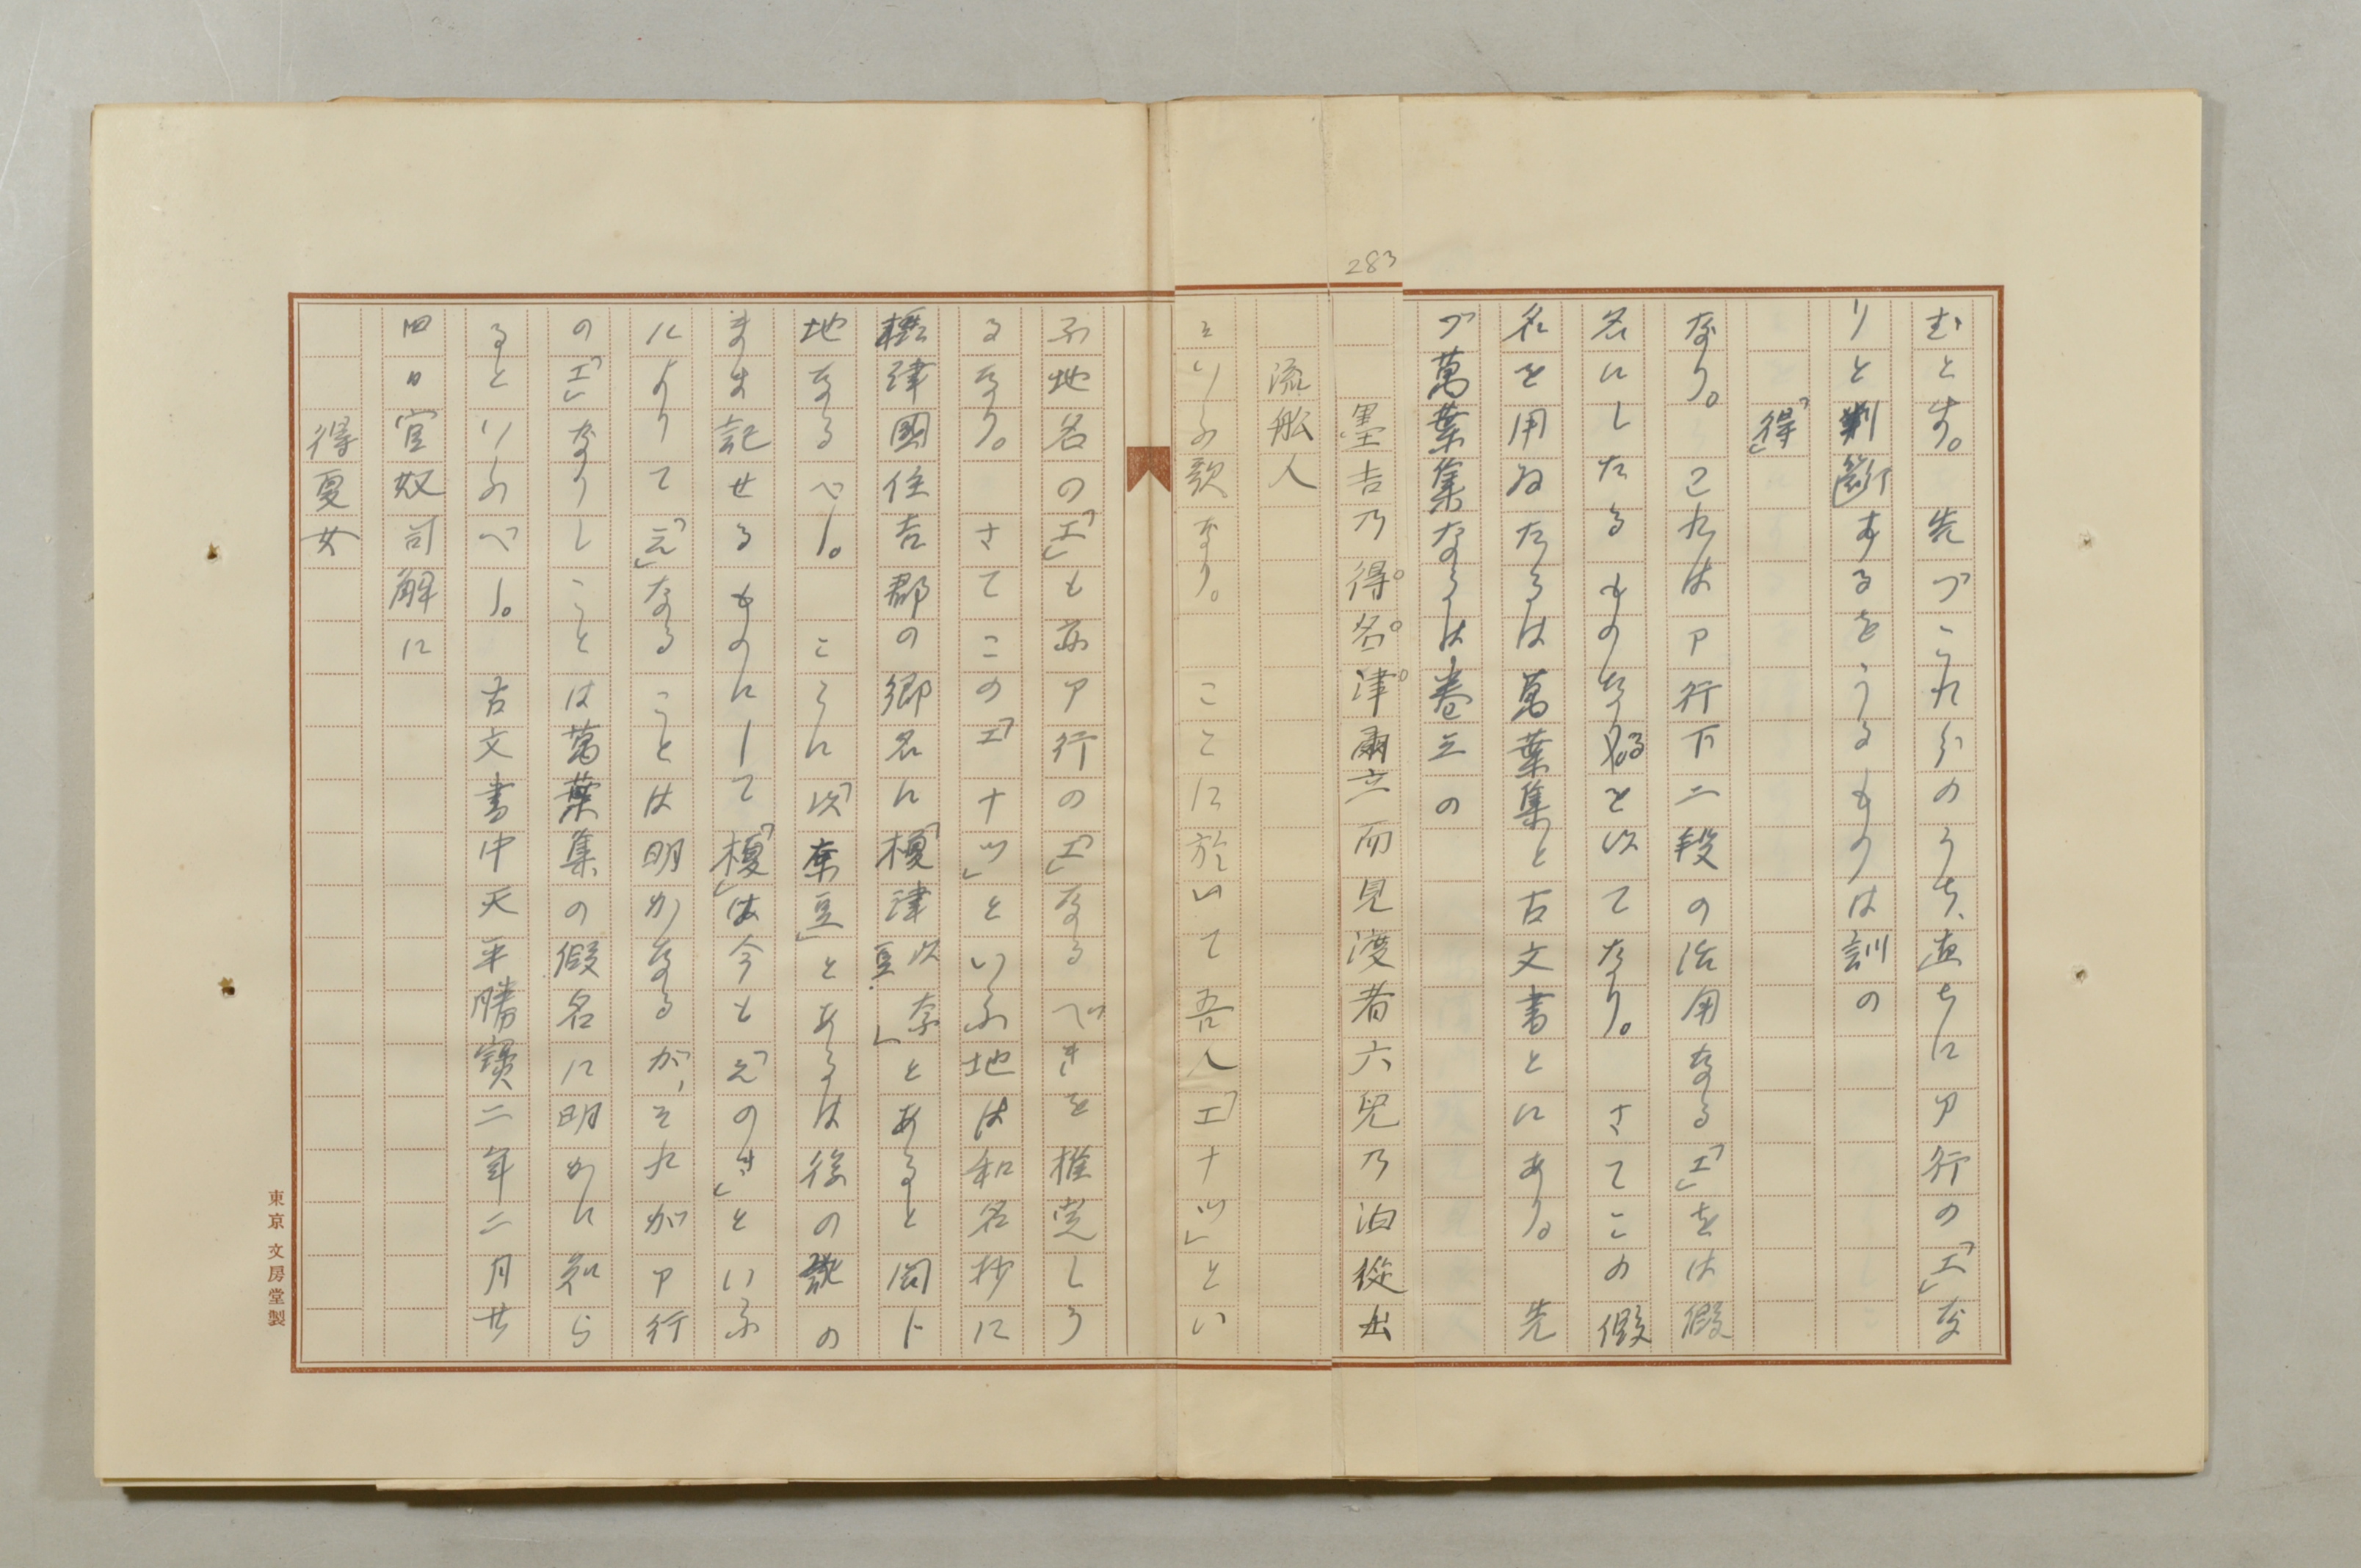 283
むとす。先づこれらのうち、直ちにア行の「エ」な
りと判斷しあるをうるものは訓の
「得」
なり。これはア行下二段の活用なる「エ」をば假
名にしたるものなるを以てなり。さてこの假
名を用ゐたるは萬葉集と古文書とにあり。先
づ萬葉集なるは卷三の
墨吉乃得名津爾立而見渡者六兒乃泊從出
流船人
といふ歌なり。ここに於いて吾人「エナツ」とい
ふ地名の「エ」も亦ア行の「エ」なるべきを推定しう
るなり。さてこの「エナツ」といふ地は和名抄に
攝津國住吉郡の郷名に「榎津以奈豆」とあると同じ
地なるべし。ここに「以奈豆」とあるは後の訛の
まま記せるものにして「榎」は今も「えのき」といふ
によりて「え」なることは明かなるが、それがア行
の「エ」なりしことは萬葉集の假名に明かに知ら
るといふべし。古文書中天平勝寶二年二月廿
四日官奴司解に
得夏女
東京文房堂製